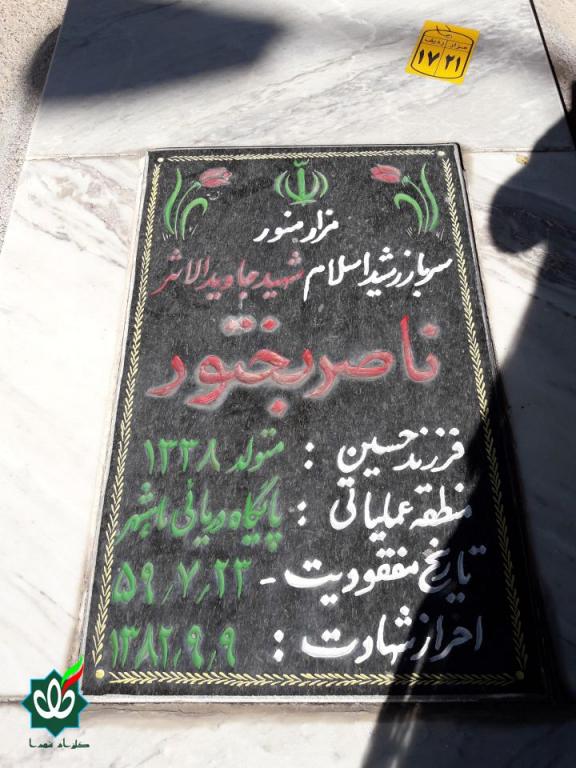 مزار ردیف
۱۷ ۲۱
مزار منور
سرباز رشید اسلام شهید جاویدالاثر
ناصر بختور
فرزند حسین : متولد ۱۳۳۸
منطقه عملیاتی : پایگاه دریائی ماهشهر
تاریخ مفقودیت - ۵۹٫۷٫۲۳
احراز شهادت : ۱۳۸۲٫۹٫۹
گلزار شهدا